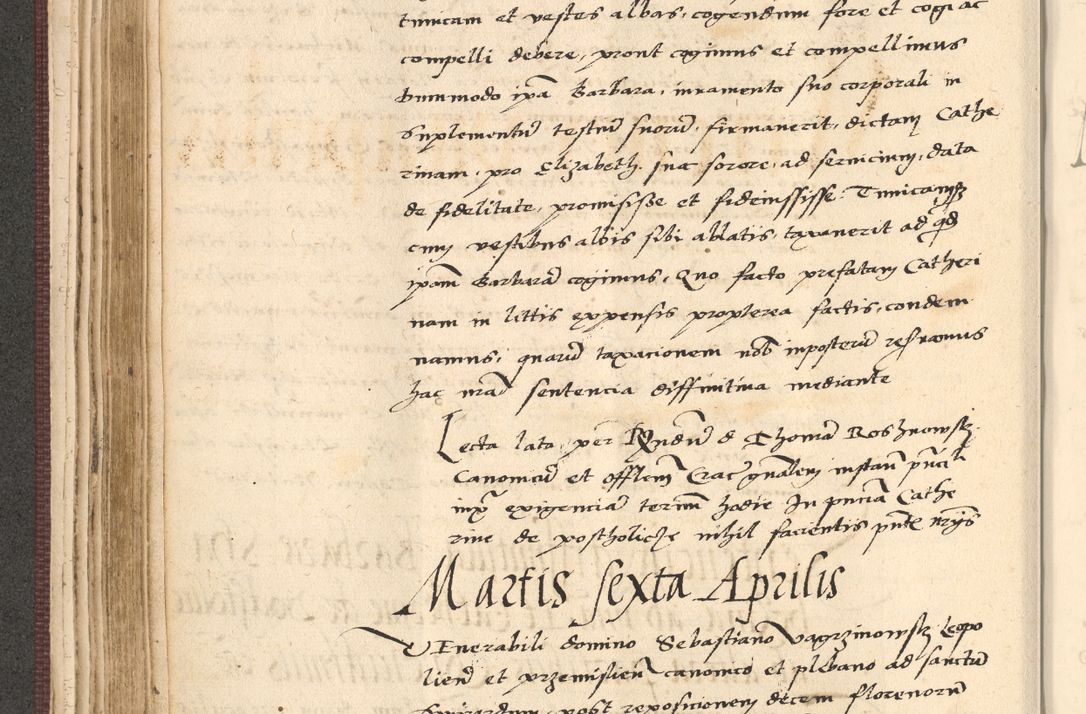 tunicam et vestes albas, cogendum fore et cogi ac
compelli debere, prout cogimus et compellimus
dummodo ipā Barbara, iuramento suo corporali in
Suplementū testiū suorū, firmauerit, dictam Cathe
rinam, pro Elizabeth sua sorore, ad seruicium, data
de fidelitate, promisisse et fideiussisse. Tunicamq
cum vestibus albis sibi ablatis, taxauerit ad qd
ipām Barbarā cogimus, Quo facto prefatam Catheri
nam in littis expensis propterea factis, condem
namus, quarū taxacionem nob inposterū reseruamus
hac nrā sentencia diffinitiua mediante
Lecta lata per Rndū d Thomā Rosznowsky
Canonicū et offlem Crac gnalem instan princili
iux exigenciā termi hodie In pnciā Cathe
rine de postholicze nihil facientis pnte nrijs
Martis sexta Aprilis
VEnerabili domino Sebastiano Vagrzinowsky Leopo
lien et przemislien canonico et plebano ad sanctū
post reposicionem decem florenorū